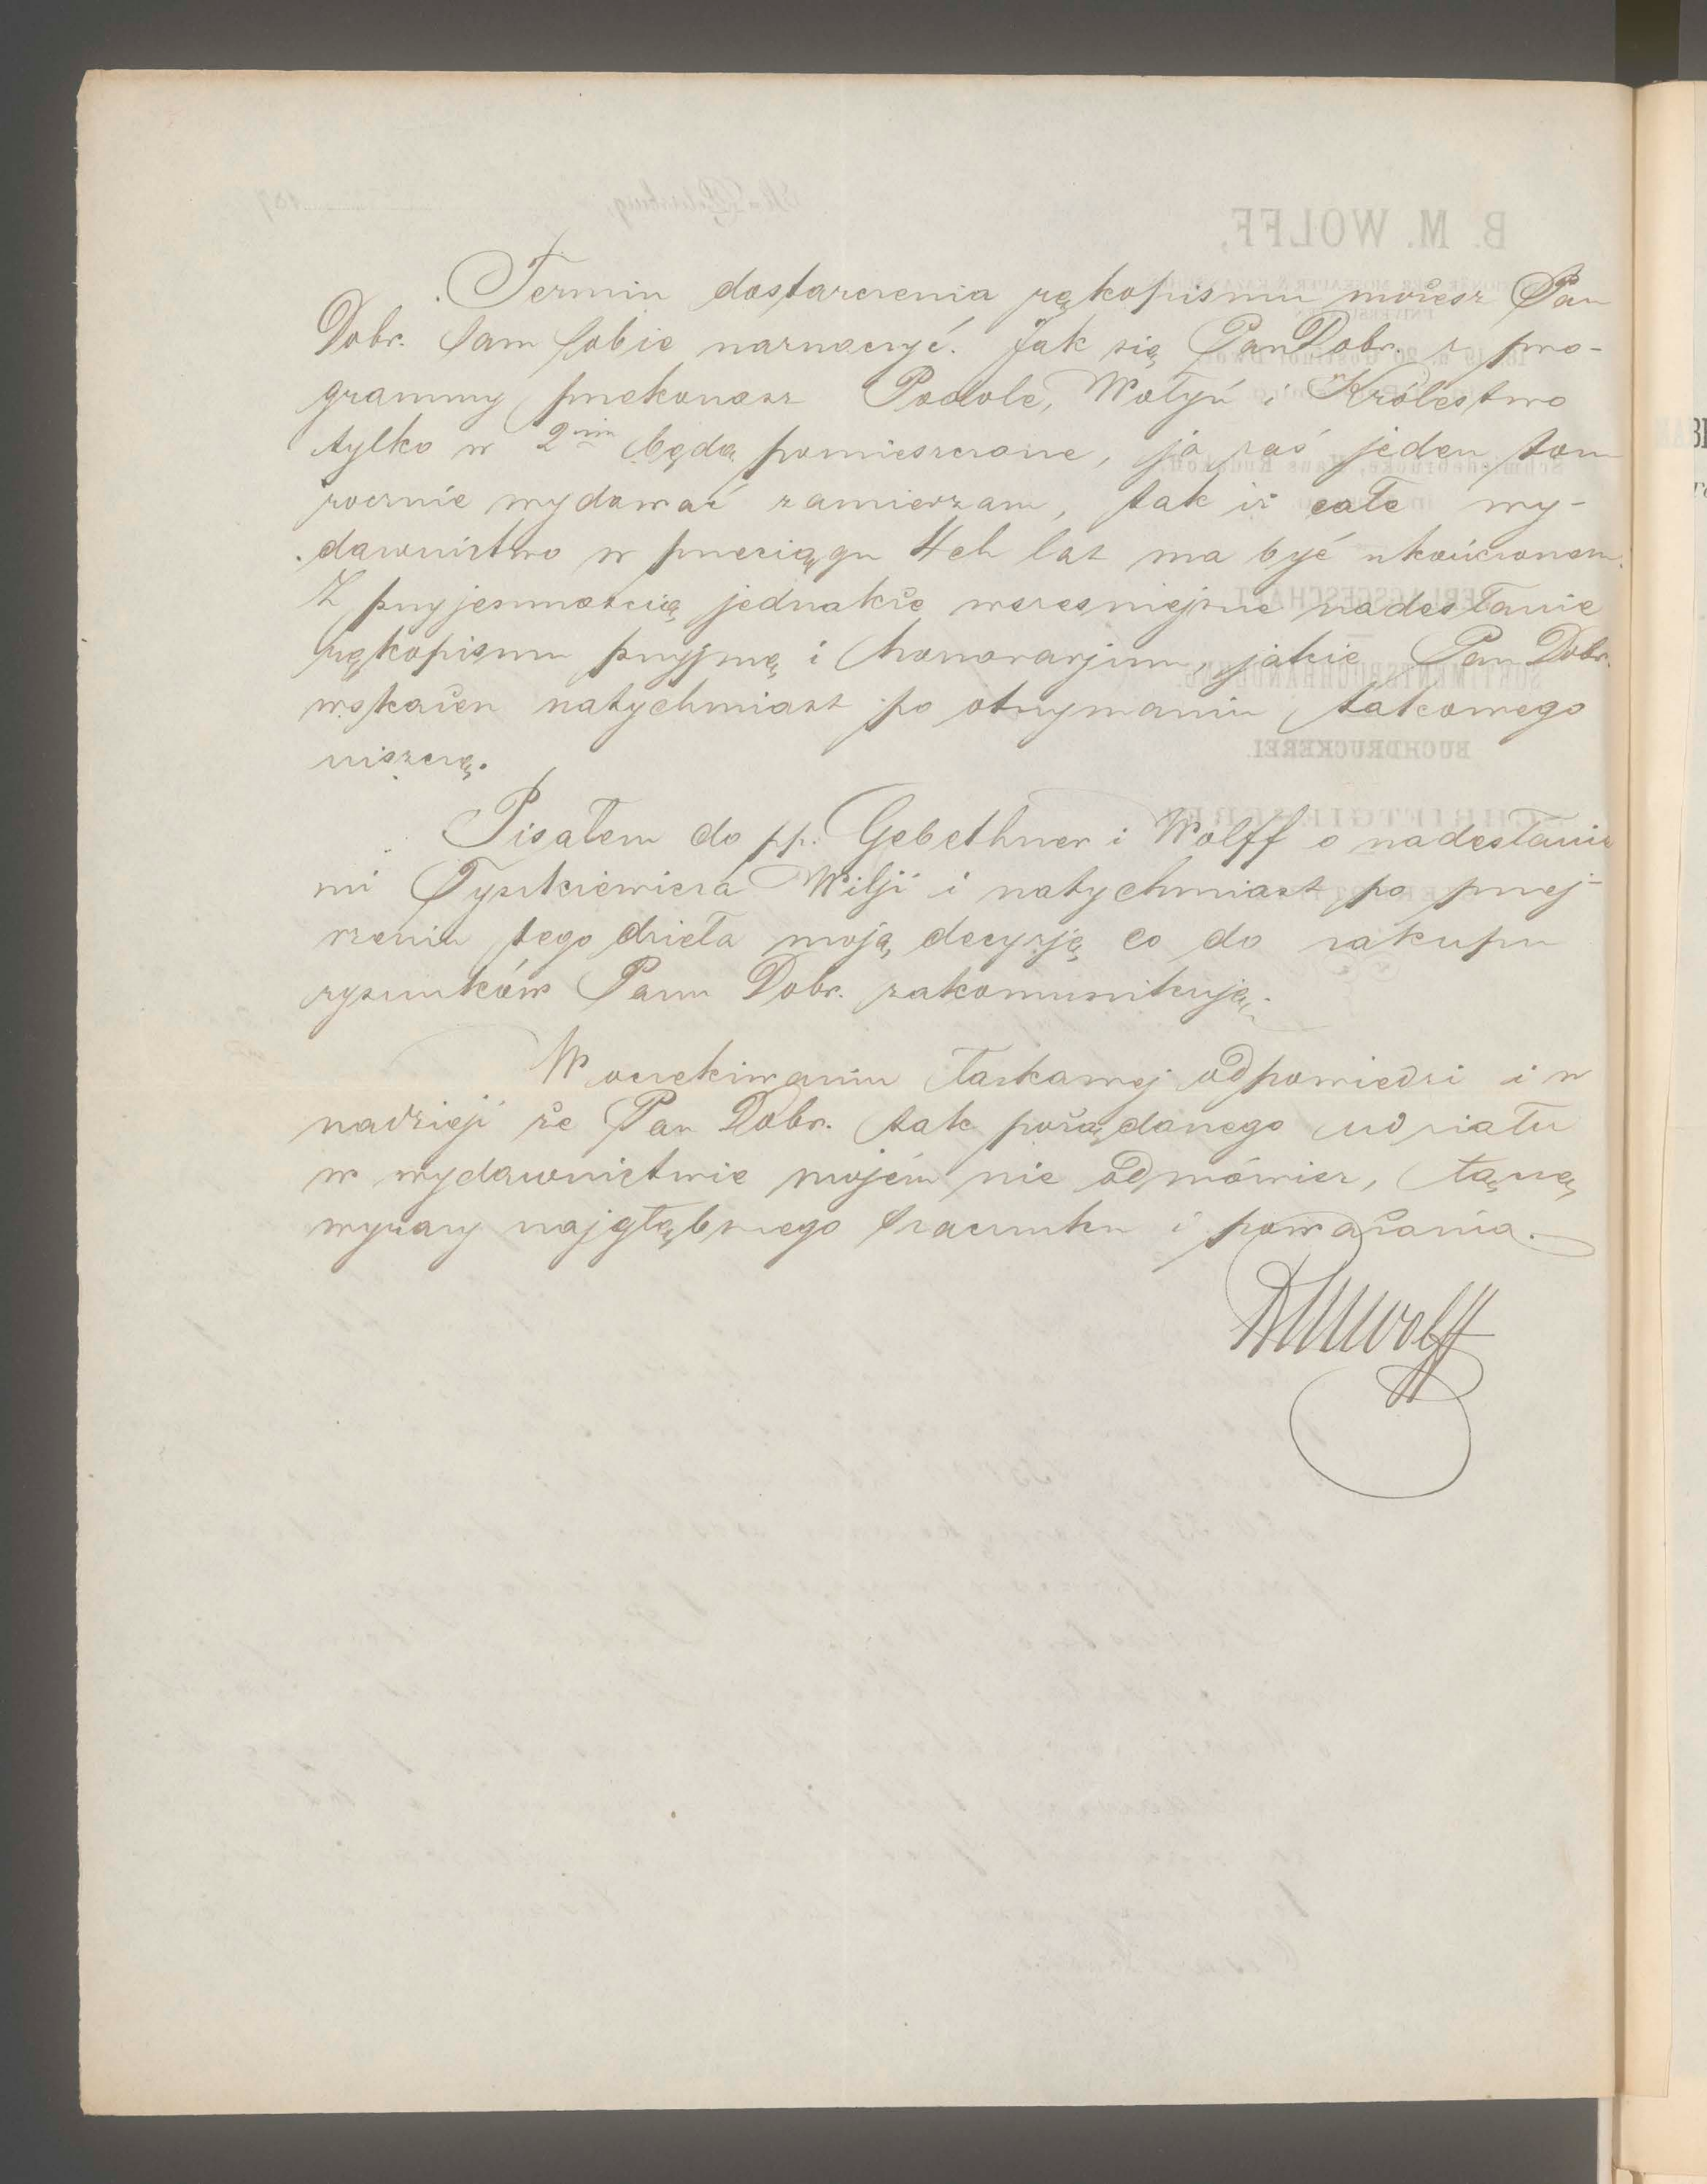 Termin dostarczenia rękopismu możesz Pan
Dobr. sam sobie naznaczyć. Jak się Pan Dobr. z pro-
grammy przekonasz Podole, Wołyń i Królestwo
tylko w 2im będą pomieszczone, ja zaś jeden tom
rocznie wydawać zamierzam, tak iż całe wy-
dawnictwo w przeciągu 4ch lat ma być ukończonem.
Z przyjemnością jednakże wcześniejsze nadesłanie
rękopismu przyjmę i honorarjum, jakie Pan Dobr.
wskażesz natychmiast po otrzymaniu takowego
uiszczę.
Pisałem do pp. Gebethner i Wolff o nadesłanie
mi Tyszkiewicza Wilji i natychmiast po przej-
rzeniu tego dzieła moją decyzję co do zakupu
rysunków Panu Dobr. zakomunikuję.
W oczekiwaniu łaskawej odpowiedzi i w
nadzieji że Pan Dobr. tak pożądanego udziału
w wydawnictwie mojém nie odmówisz, łączę
wyrazy najgłębszego szacunku i poważania.
BMWolff
B. M. WOLFF,
St. Petersburg, 187
BUCHDRUCKEREI.